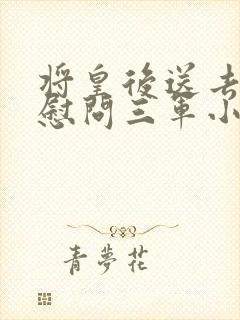 將皇後送去
慰問三軍小
青夢花